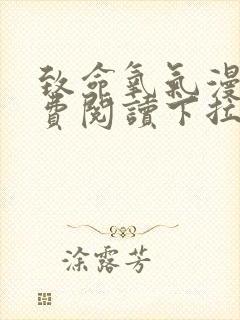 致命氧氣漫
費閱讀下拉
涂露芳